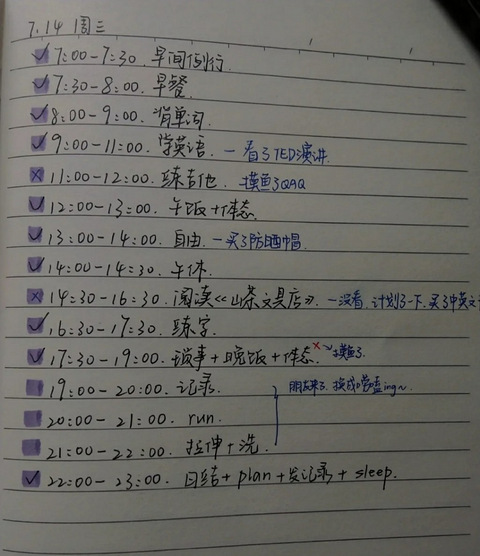 7.14 周三
✓ 7:00-7:30. 早间例行.
✓ 7:30-8:00. 早餐.
✓ 8:00-9:00. 背单词.
✓ 9:00-11:00. 学英语. — 看了TED演讲.
× 11:00-12:00. 练吉他. 摸鱼了QAQ
✓ 12:00-13:00. 午饭+体态.
✓ 13:00-14:00. 自由. — 买了防晒帽.
✓ 14:00-14:30. 午休.
× 14:30-16:30. 阅读《山茶文具店》. — 没看, 计划了一下, 买了中英文
✓ 16:30-17:30. 练字.
✓ 17:30-19:00. 琐事+晚饭+体态. × 摸鱼了.
19:00-20:00. 记录. 朋友来了, 换成ing~
20:00-21:00. run.
21:00-22:00. 拉伸+洗.
✓ 22:00-23:00. 日结+plan+发记录+sleep.